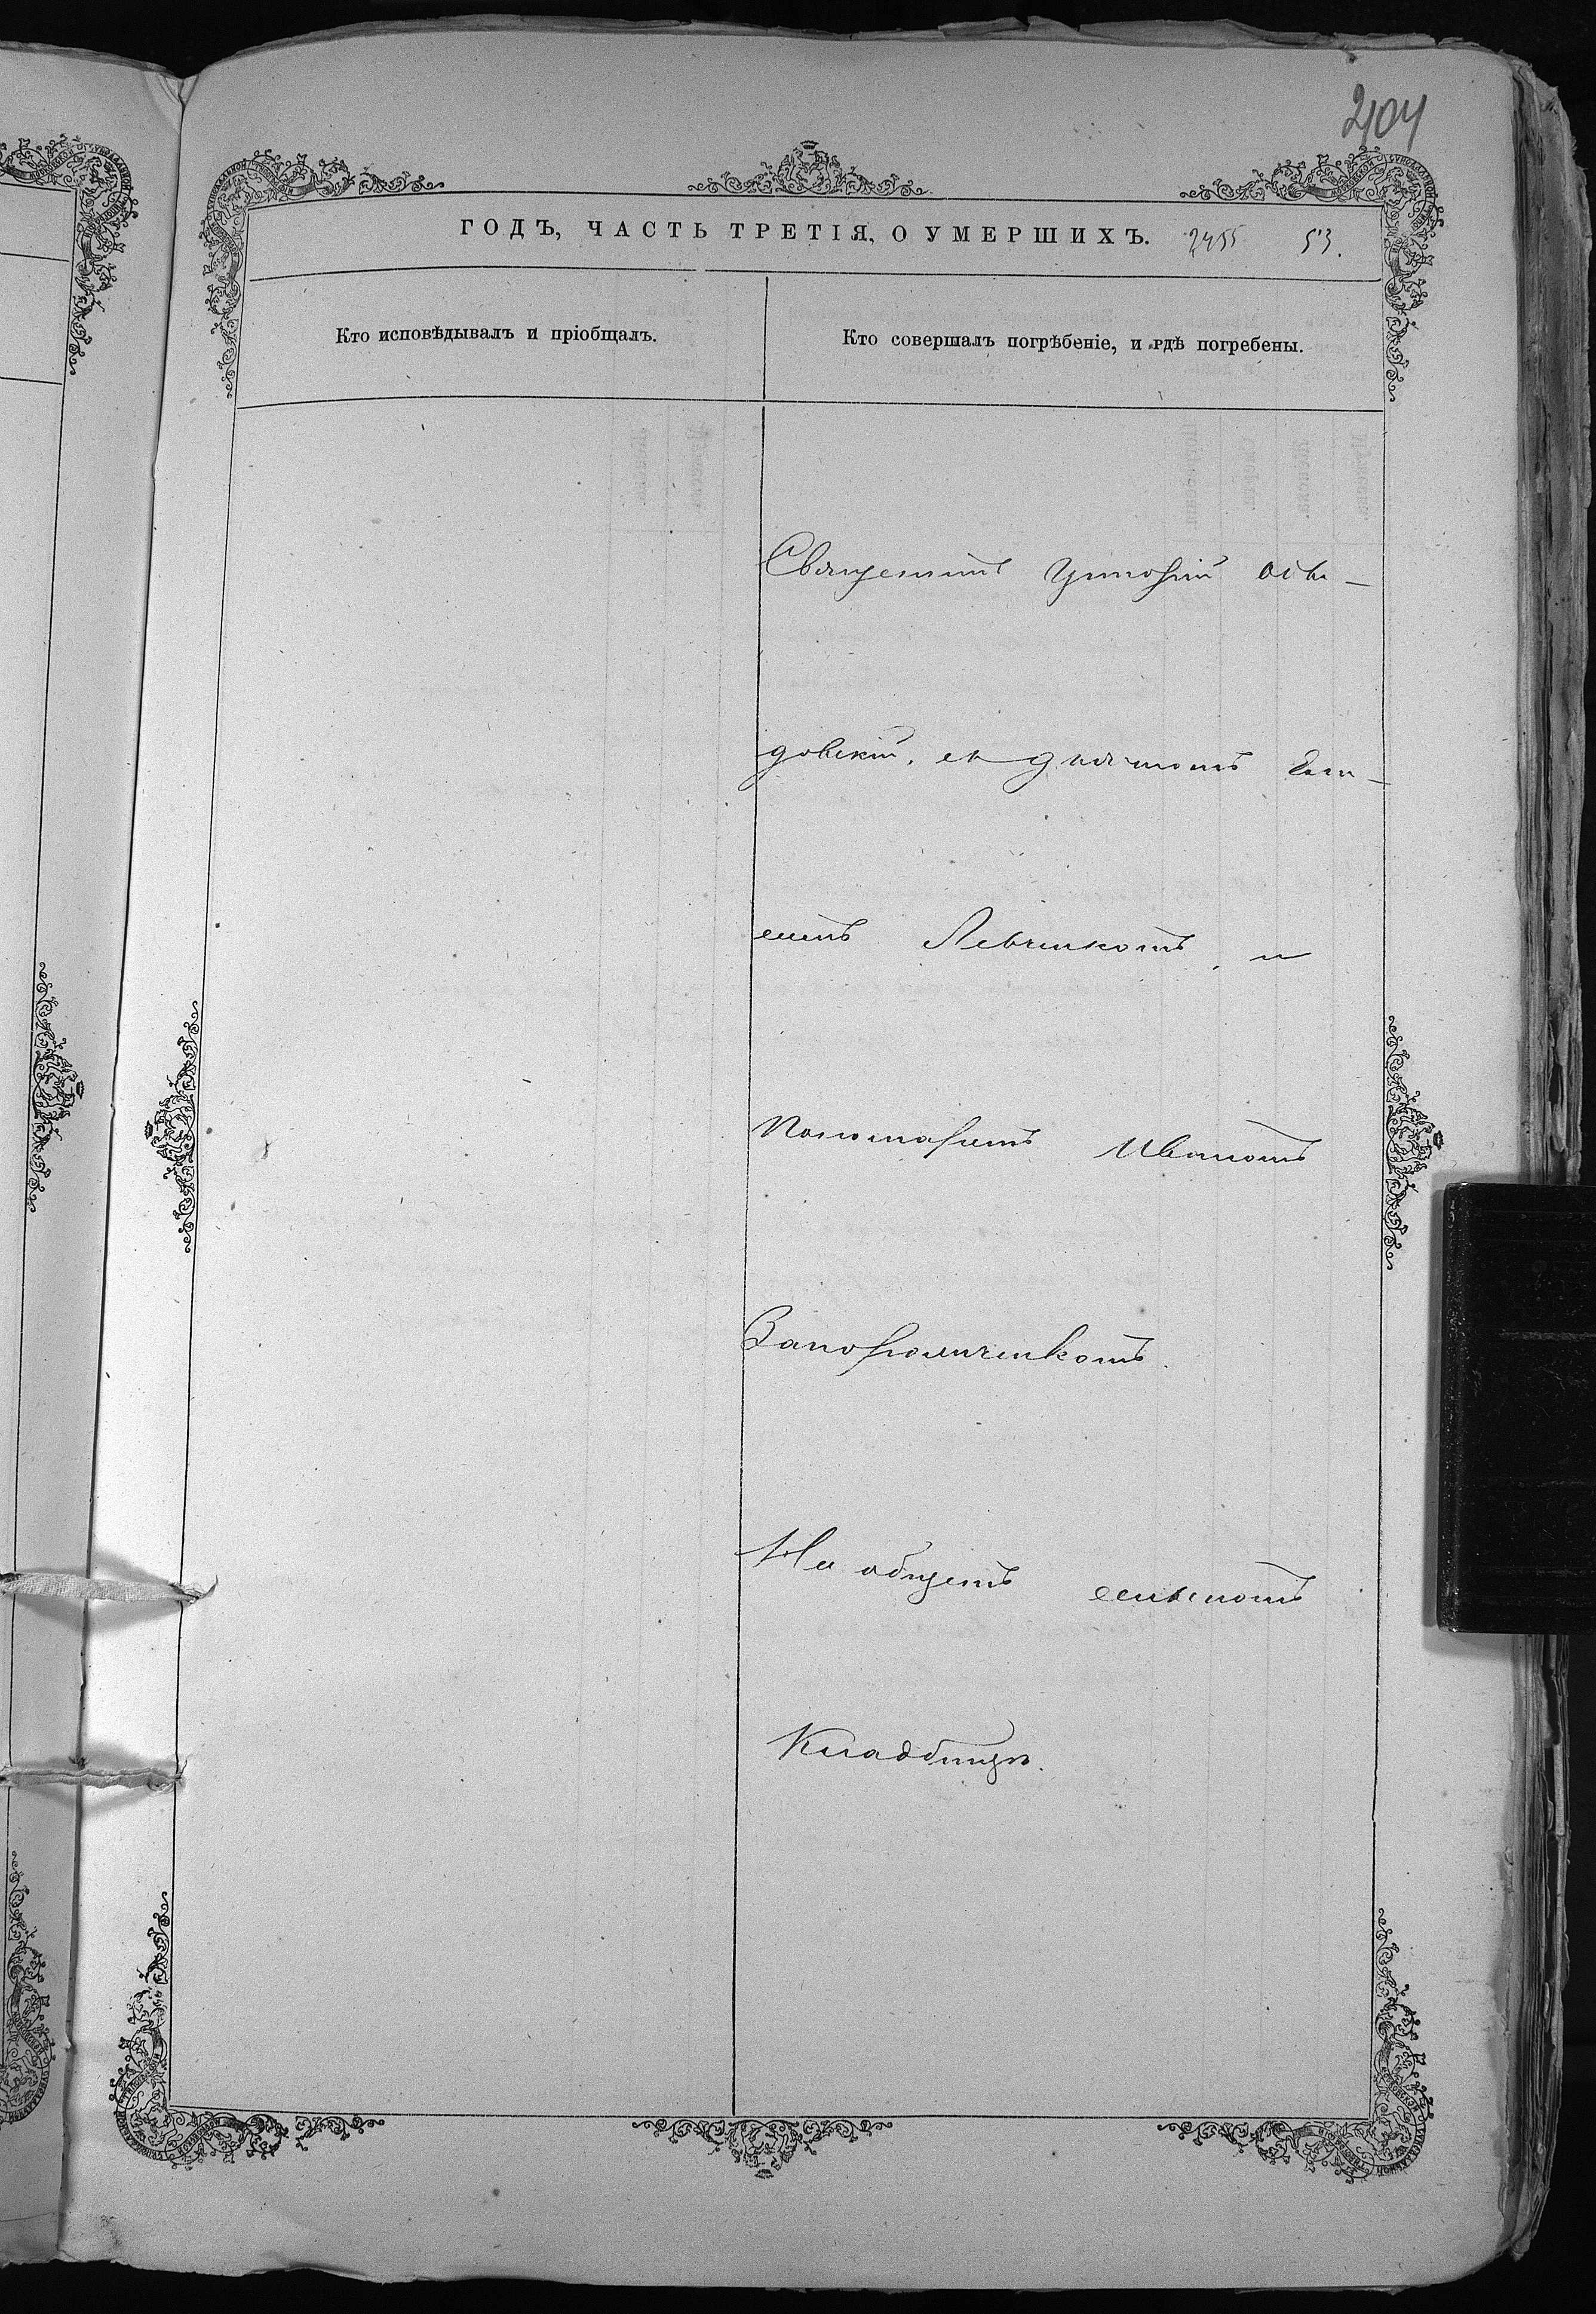 204
ГОДЪ, ЧАСТЬ ТРЕТІЯ, О УМЕРШИХЪ. 2455 53.
Кто исповѣдывалъ и пріобщалъ.
Кто совершалъ погрѣбеніе, и гдѣ погребены.
Священникъ Григорій
довскій, съ дьячкомъ
Левченкомъ, и
Пономаремъ Иваномъ
Запорожченкомъ.
На общемъ сельскомъ
Кладбищѣ.